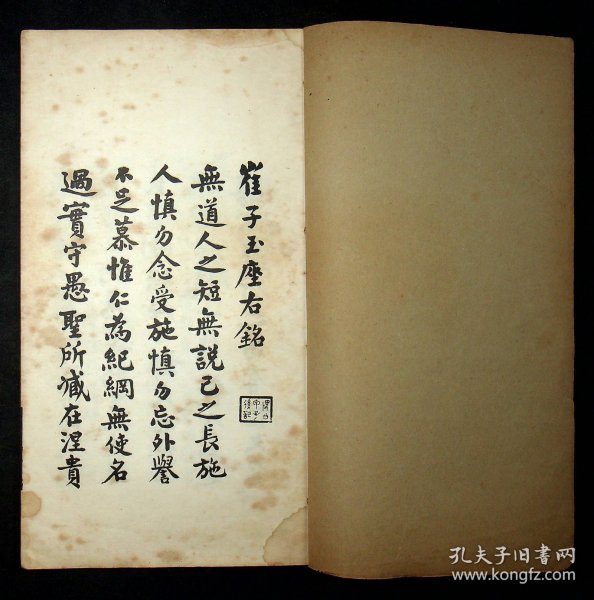 崔子玉座右銘
無道人之短無説己之長施
人慎勿念受施慎勿忘外譽
不足慕惟仁為紀綱無使名
過實守愚聖所臧在涅貴
孔夫子旧书网
www.kongfz.com